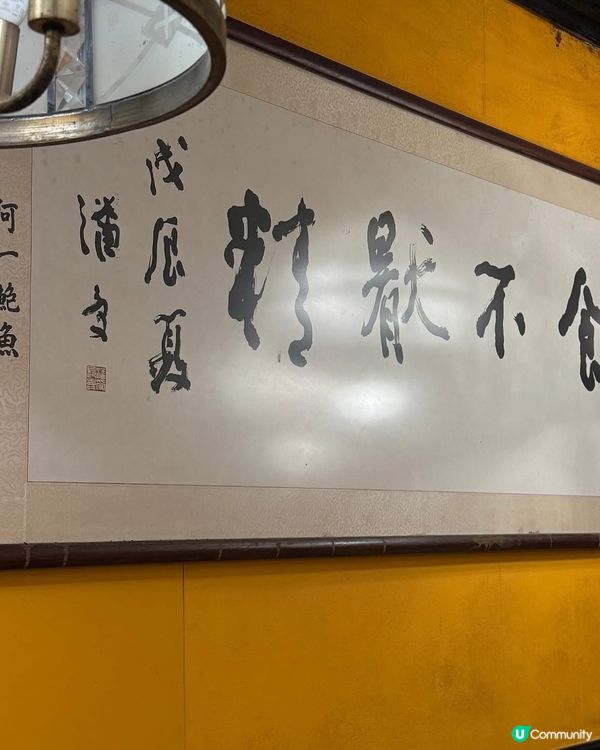 食不猒精
戊辰夏
潘受
阿一鮑魚
U Community